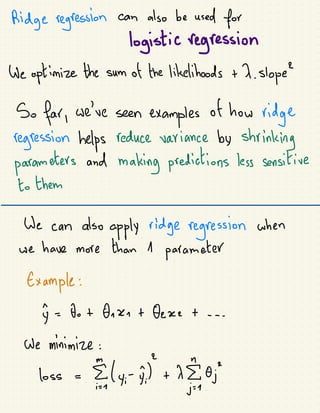 Ridge regression can also be used for
logistic regression
We optimize the sum of the likelihoods + λ.slope²
So far, we've seen examples of how ridge
regression helps reduce variance by shrinking
parameters and making predictions less sensitive
to them
We can also apply ridge regression when
we have more than 1 parameter
Example:
ŷ = θ₀ + θ₁x₁ + θ₂x₂ + ---
We minimize:
loss = Σᵢ₌₁ᵐ (yᵢ - ŷᵢ)² + λ Σⱼ₌₁ⁿ θⱼ²